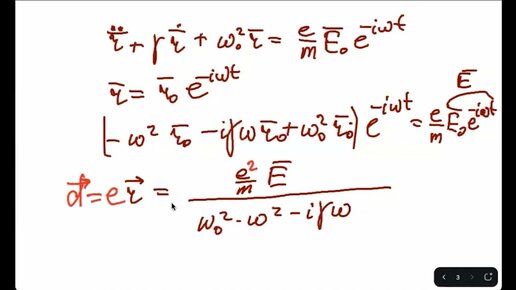 r̈ + γṙ + ω₀²r̄ = e/m Ē₀e^{-iωt}
r̄ = r̄₀ e^{-iωt}
Ē
(-ω² r̄₀ - iγω r̄₀ + ω₀² r̄₀) e^{-iωt} = e/m Ē₀e^{-iωt}
d⃗ = e r⃗ = (e²/m Ē)/(ω₀² - ω² - iγω)
3